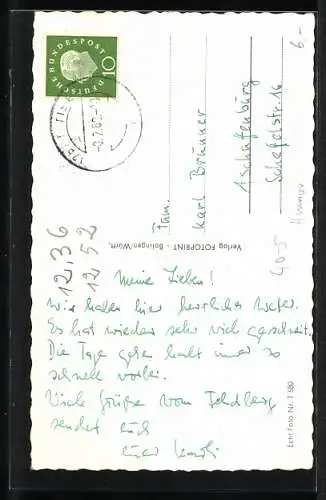 DEUTSCHE BUNDESPOST
10
6,-
Fam.
Karl Brunner
Aschaffenburg
Scheffelstr. 16
Verlag FOTOPRINT - Balingen/Württ.
405
12.36
12 52
Meine Lieben!
Wir haben hier herrliches Wetter.
Es hat wieder sehr viel geschneit.
Die Tage gehen halt immer so
schnell vorbei.
Viele Grüße vom Feldberg
sendet Euch
Euer
Echt Foto Nr. T 580